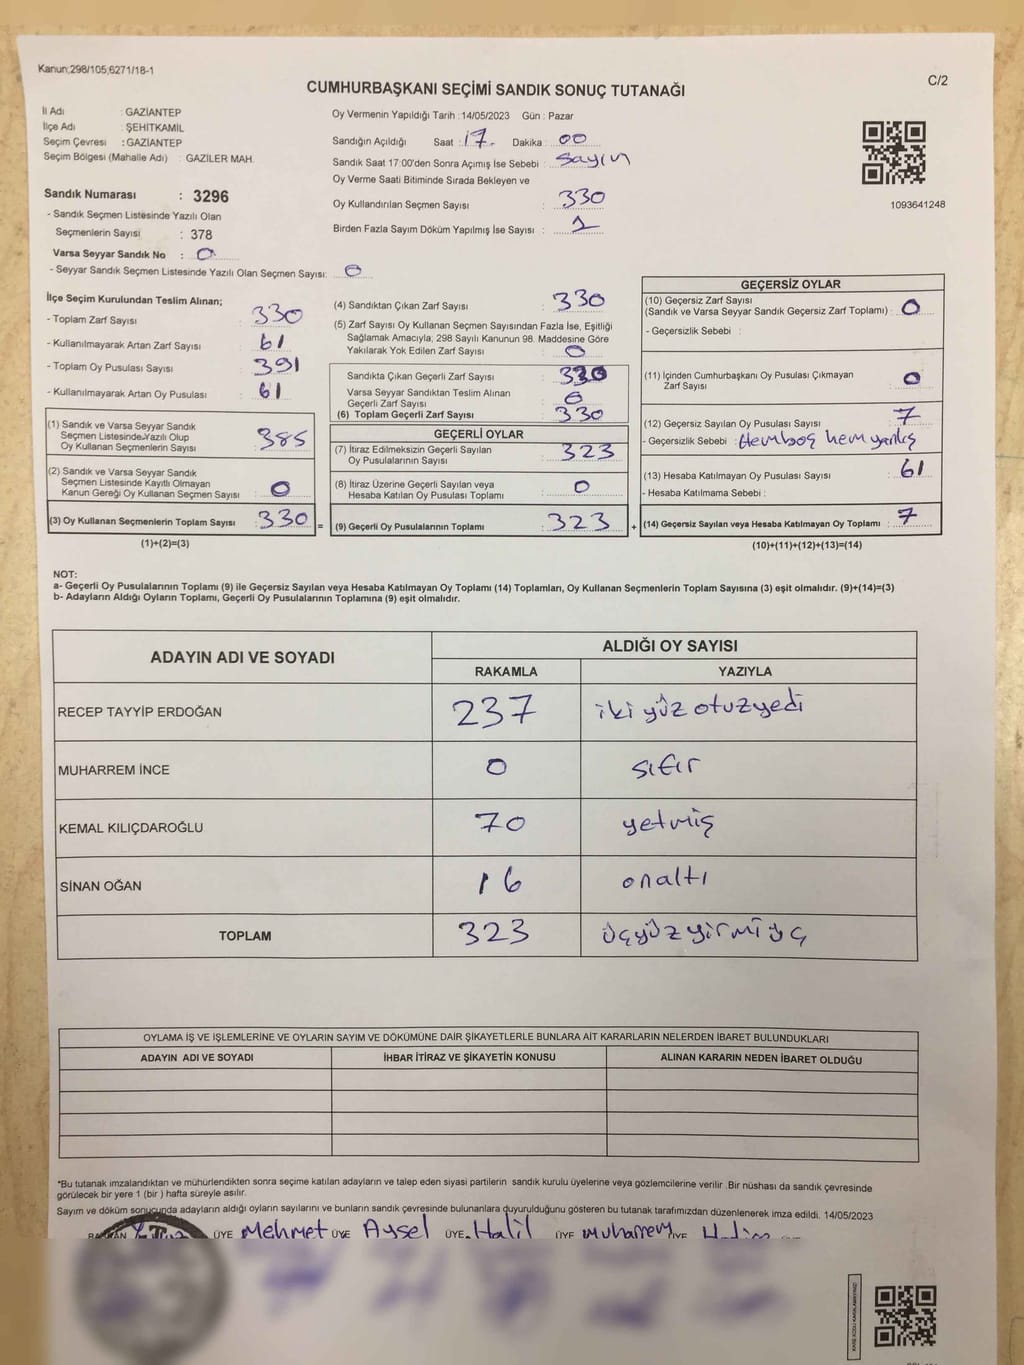 Kanun;298/105;6271/18-1
C/2
CUMHURBAŞKANI SEÇİMİ SANDIK SONUÇ TUTANAĞI
İl Adı : GAZİANTEP
İlçe Adı : ŞEHİTKAMİL
Seçim Çevresi : GAZİANTEP
Seçim Bölgesi (Mahalle Adı) : GAZİLER MAH.
Sandık Numarası : 3296
- Sandık Seçmen Listesinde Yazılı Olan
Seçmenlerin Sayısı : 378
Varsa Seyyar Sandık No : 0
- Seyyar Sandık Seçmen Listesinde Yazılı Olan Seçmen Sayısı: 0
Oy Vermenin Yapıldığı Tarih : 14/05/2023 Gün : Pazar
Sandığın Açıldığı Saat : 17. Dakika : 00
Sandık Saat 17:00'den Sonra Açımış İse Sebebi : sayın
Oy Verme Saati Bitiminde Sırada Bekleyen ve
Oy Kullandırılan Seçmen Sayısı : 330
Birden Fazla Sayım Döküm Yapılmış İse Sayısı : 1
1093641248
İlçe Seçim Kurulundan Teslim Alınan;
- Toplam Zarf Sayısı : 330
- Kullanılmayarak Artan Zarf Sayısı : 61
- Toplam Oy Pusulası Sayısı : 391
- Kullanılmayarak Artan Oy Pusulası : 61
(1) Sandık ve Varsa Seyyar Sandık
Seçmen Listesinde Yazılı Olup
Oy Kullanan Seçmenlerin Sayısı : 385
(2) Sandık ve Varsa Seyyar Sandık
Seçmen Listesinde Kayıtlı Olmayan
Kanun Gereği Oy Kullanan Seçmen Sayısı : 0
(3) Oy Kullanan Seçmenlerin Toplam Sayısı : 330 =
(1)+(2)=(3)
(4) Sandıktan Çıkan Zarf Sayısı : 330
(5) Zarf Sayısı Oy Kullanan Seçmen Sayısından Fazla İse, Eşitliği
Sağlamak Amacıyla; 298 Sayılı Kanunun 98. Maddesine Göre
Yakılarak Yok Edilen Zarf Sayısı : 0
Sandıkta Çıkan Geçerli Zarf Sayısı : 330
Varsa Seyyar Sandıktan Teslim Alınan
Geçerli Zarf Sayısı : 0
(6) Toplam Geçerli Zarf Sayısı : 330
GEÇERLİ OYLAR
(7) İtiraz Edilmeksizin Geçerli Sayılan
Oy Pusulalarının Sayısı : 323
(8) İtiraz Üzerine Geçerli Sayılan veya
Hesaba Katılan Oy Pusulası Toplamı : 0
(9) Geçerli Oy Pusulalarının Toplamı : 323 +
GEÇERSİZ OYLAR
(10) Geçersiz Zarf Sayısı
(Sandık ve Varsa Seyyar Sandık Geçersiz Zarf Toplamı) : 0
- Geçersizlik Sebebi :
(11) İçinden Cumhurbaşkanı Oy Pusulası Çıkmayan
Zarf Sayısı : 0
(12) Geçersiz Sayılan Oy Pusulası Sayısı : 7
- Geçersizlik Sebebi : Hemboş hem yanlış
(13) Hesaba Katılmayan Oy Pusulası Sayısı : 61
- Hesaba Katılmama Sebebi :
(14) Geçersiz Sayılan veya Hesaba Katılmayan Oy Toplamı : 7
(10)+(11)+(12)+(13)=(14)
NOT:
a- Geçerli Oy Pusulalarının Toplamı (9) ile Geçersiz Sayılan veya Hesaba Katılmayan Oy Toplamı (14) Toplamları, Oy Kullanan Seçmenlerin Toplam Sayısına (3) eşit olmalıdır. (9)+(14)=(3)
b- Adayların Aldığı Oyların Toplamı, Geçerli Oy Pusulalarının Toplamına (9) eşit olmalıdır.
ADAYIN ADI VE SOYADI ALDIĞI OY SAYISI
RAKAMLA YAZIYLA
RECEP TAYYİP ERDOĞAN 237 iki yüz otuzyedi
MUHARREM İNCE 0 sıfır
KEMAL KILIÇDAROĞLU 70 yetmiş
SİNAN OĞAN 16 onaltı
TOPLAM 323 üçyüzyirmiüç
OYLAMA İŞ VE İŞLEMLERİNE VE OYLARIN SAYIM VE DÖKÜMÜNE DAİR ŞİKAYETLERLE BUNLARA AİT KARARLARIN NELERDEN İBARET BULUNDUKLARI
ADAYIN ADI VE SOYADI İHBAR İTİRAZ VE ŞİKAYETİN KONUSU ALINAN KARARIN NEDEN İBARET OLDUĞU
*Bu tutanak imzalandıktan ve mühürlendikten sonra seçime katılan adayların ve talep eden siyasi partilerin sandık kurulu üyelerine veya gözlemcilerine verilir .Bir nüshası da sandık çevresinde
görülecek bir yere 1 (bir ) hafta süreyle asılır.
Sayım ve döküm sonucunda adayların aldığı oyların sayılarını ve bunların sandık çevresinde bulunanlara duyurulduğunu gösteren bu tutanak tarafımızdan düzenlenerek imza edildi. 14/05/2023
ÜYE Mehmet ÜYE Aysel ÜYE Halil ÜYE Muharrem ÜYE